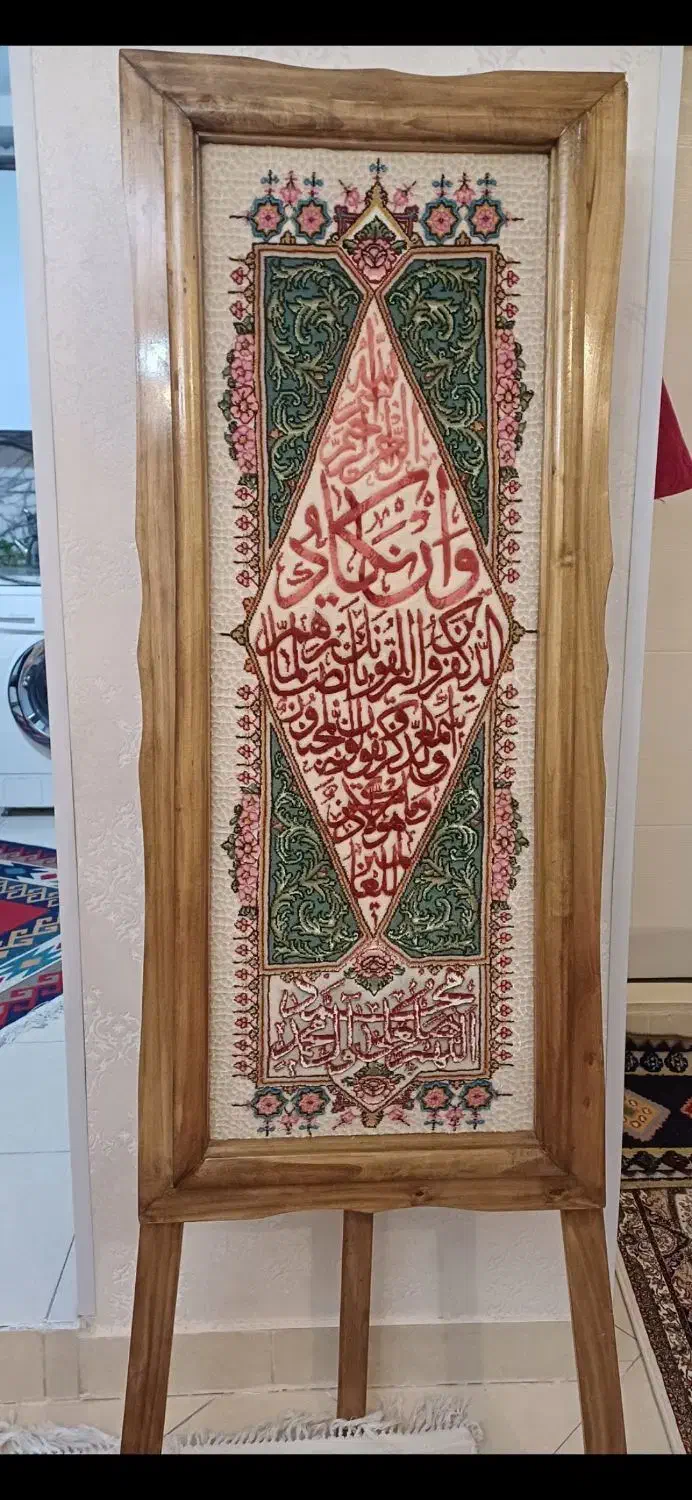 بسم الله
الرحمن الرحیم
وَاِنْ یَکادُ
الَّذینَ کَفَرُوا لَیُزْلِقُونَکَ بِاَبْصارِهِمْ لَمّا
سَمِعُوا الذِّکْرَ وَیَقُولُونَ اِنَّهُ لَمَجْنُونٌ
وَما هُوَ اِلّا ذِکْرٌ
لِلْعالَمینَ
اللهم صل علی محمد و آل محمد